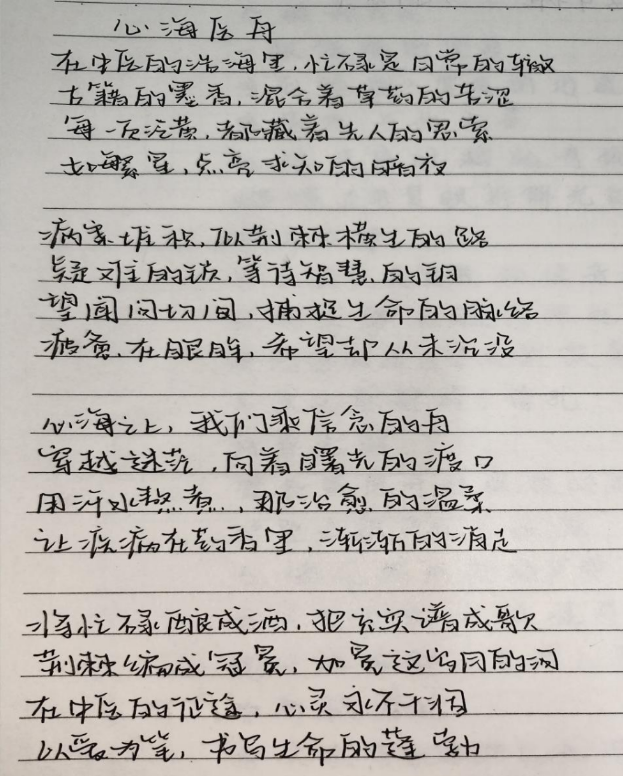 心海医舟
在中医的浩海里,忙碌是日常的辙
古籍的墨香,混合着草药的苦涩
每一页泛黄,都藏着先人的思索
如繁星,点亮求知的暗夜
病案堆积,似荆棘横生的路
疑难的锁,等待智慧的钥
望闻问切间,捕捉生命的脉络
疲惫,在眼眸,希望却从未沉没
心海之上,我们乘信念的舟
穿越迷茫,向着曙光的渡口
用汗水熬煮,那治愈的温柔
让疾病在药香里,渐渐的消走
将忙碌酿成酒,把充实谱成歌
荆棘编成冠冕,加冕这岁月的河
在中医的征途,心灵永不干涸
以爱为笔,书写生命的蓬勃